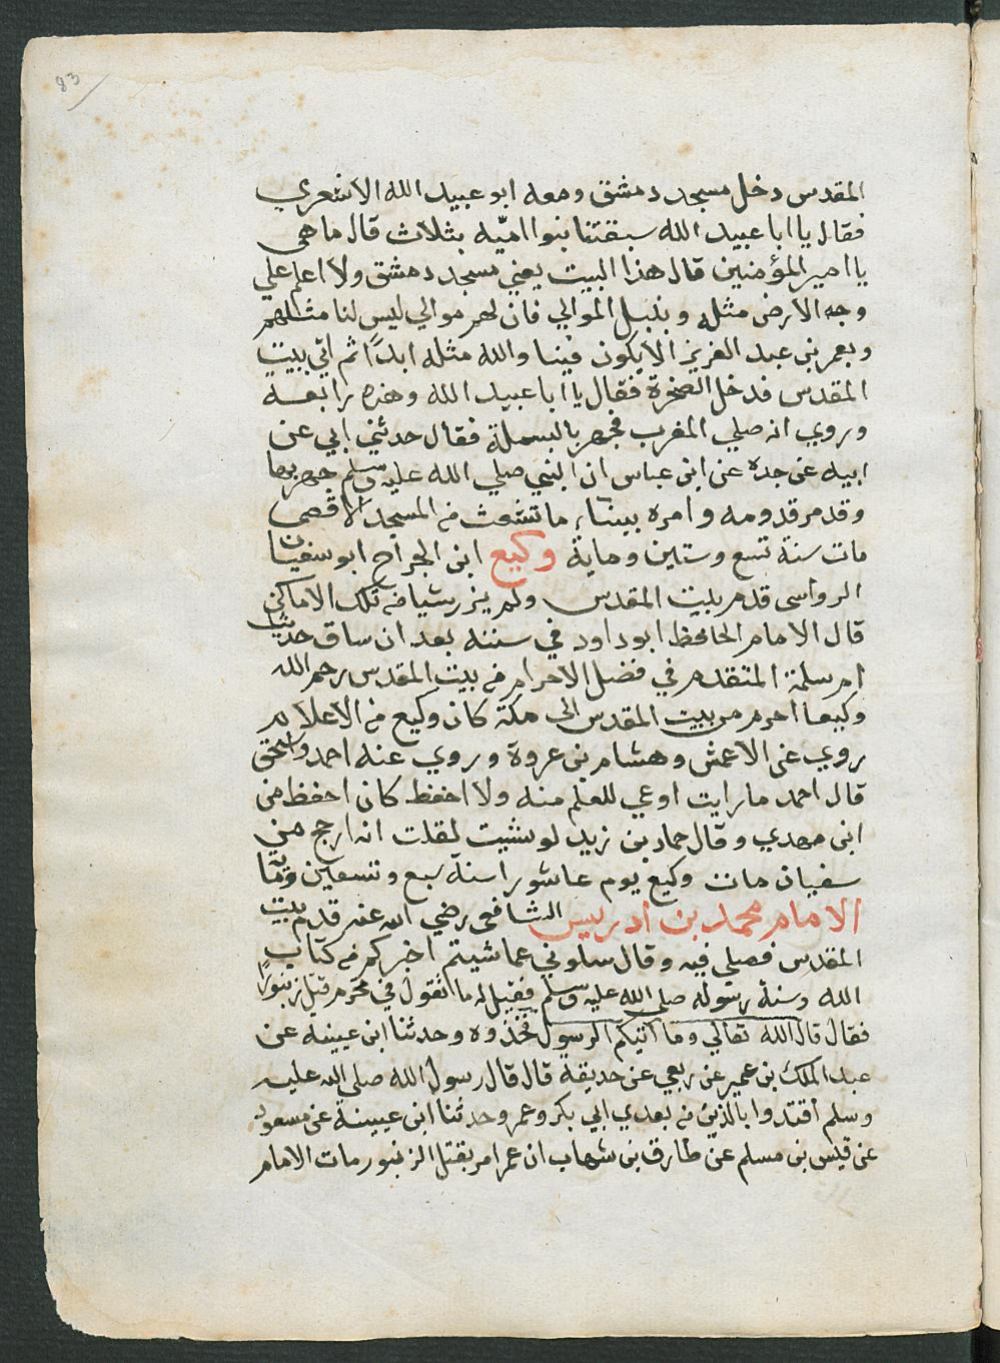 83
المقدس دخل مسجد دمشق ومعه ابو عبيد الله الاشعري
فقال يا ابا عبيد الله سبقتنا بنوا اميّه بثلاث قال ما هي
يا امير المؤمنين قال هذا البيت يعني مسجد دمشق ولا اعلم علي
وجه الارض مثله وبنبل الموالي فان لهم موالي ليس لنا مثلهم
وبعمر بن عبد العزيز الا يكون فينا والله مثله ابدًا ثم اتي بيت
المقدس فدخل الصخرة فقال يا ابا عبيد الله وهذه رابعة
وروي انه صلي المغرب فجهر بالبسملة فقال حدثني ابي عن
ابيه عن جده عن ابن عباس ان النبي صلي الله عليه وسلم جهر بها
وقدم قدومه وامره ببناء ما تشعث من المسجد الاقصى
مات سنة تسع وستين وماية وكيع ابن الجراح ابو سفيان
الرواسى قدم بيت المقدس ولم يزر شيا من تلك الاماكن
قال الامام الحافظ ابو داود في سننه بعد ان ساق حديث
ام سلمة المتقدم في فضل الاحرام من بيت المقدس رحم الله
وكيعا احرم من بيت المقدس الى مكة كان وكيع من الاعلام
روي عن الاعمش وهشام بن عروة وروي عنه احمد واسحق
قال احمد ما رايت اوعي للعلم منه ولا احفظ كان احفظ من
ابن مهدي وقال حماد بن زيد لو شيت لقلت انه ارجح من
سفيان مات وكيع يوم عاشورا سنة سبع وتسعين وماية
الامام محمد بن ادريس الشافعى رضي الله عنه قدم بيت
المقدس فصلي فيه وقال سلوني عما شيتم اخبركم من كتاب
الله وسنة رسوله صلى الله عليه وسلم فقيل له ما تقول في محرم قتل زنبورًا
فقال قال الله تعالي وما آتيكم الرسول فخذوه وحدثنا ابن عيينه عن
عبد الملك بن عمير عن ربعي عن حذيفة قال قال رسول الله صلى الله عليه
وسلم اقتدوا بالذين من بعدي ابي بكر وعمر وحدثنا ابن عيينة عن مسعود
عن قيس بن مسلم عن طارق بن شهاب ان عمر امر بقتل الزنبور مات الامام